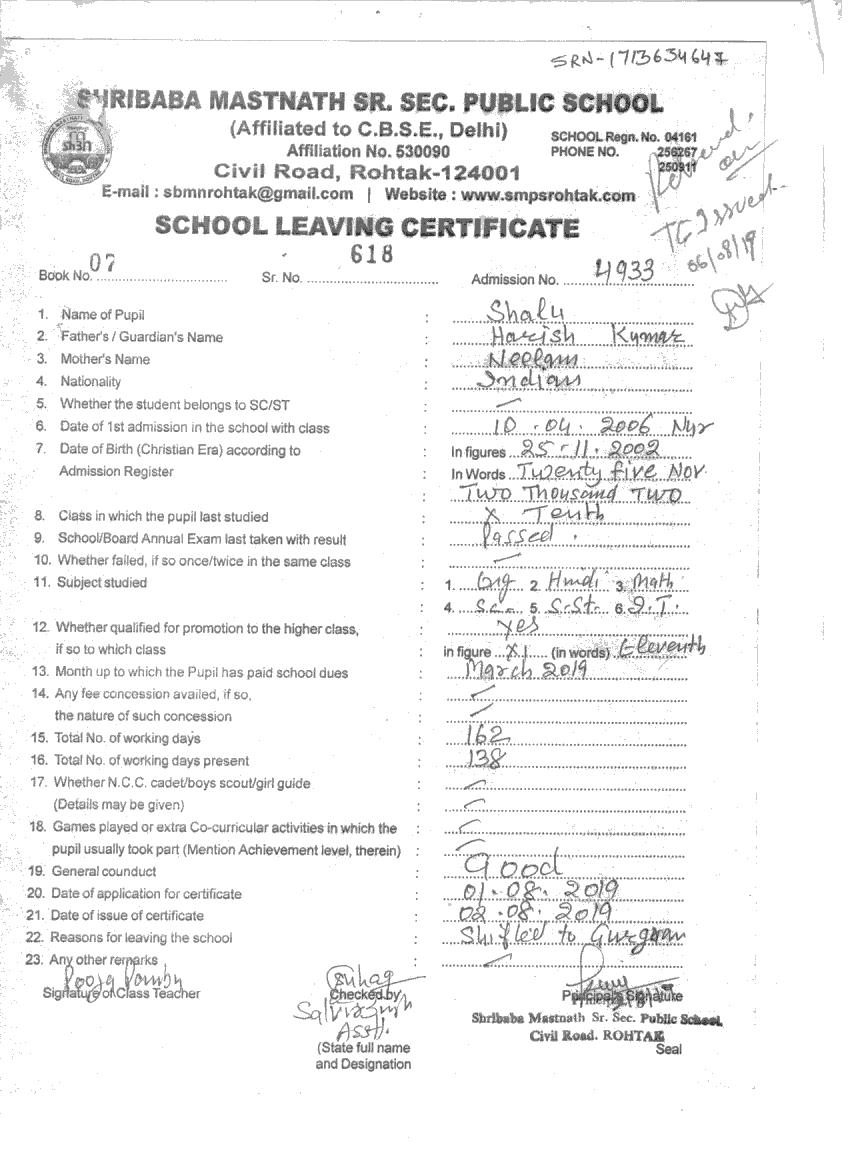 SRN-1713634647
SHRIBABA MASTNATH SR. SEC. PUBLIC SCHOOL
(Affiliated to C.B.S.E., Delhi)
Affiliation No. 530090
SCHOOL Regn. No. 04161
PHONE NO. 256267
250911
Civil Road, Rohtak-124001
E-mail : sbmnrohtak@gmail.com | Website : www.smpsrohtak.com
TC Issued.
06/08/19
SCHOOL LEAVING CERTIFICATE
Book No. 07 Sr. No. 618 Admission No. 4933
1. Name of Pupil : Shalu
2. Father's / Guardian's Name : Harish Kumar
3. Mother's Name : Neelam
4. Nationality : Indian
5. Whether the student belongs to SC/ST :
6. Date of 1st admission in the school with class : 10.04.2006 Nur
7. Date of Birth (Christian Era) according to : In figures 25-11-2002
Admission Register In Words Twenty five Nov
Two Thousand Two
8. Class in which the pupil last studied : X Tenth
9. School/Board Annual Exam last taken with result : Passed.
10. Whether failed, if so once/twice in the same class :
11. Subject studied : 1. Eng 2. Hindi 3. Math
: 4. Sc. 5. S.St. 6. I.T.
12. Whether qualified for promotion to the higher class, : Yes
if so to which class in figure XI (in words) Eleventh
13. Month up to which the Pupil has paid school dues : March 2019
14. Any fee concession availed, if so, :
the nature of such concession :
15. Total No. of working days : 162
16. Total No. of working days present : 138
17. Whether N.C.C. cadet/boys scout/girl guide :
(Details may be given) :
18. Games played or extra Co-curricular activities in which the :
pupil usually took part (Mention Achievement level, therein) :
19. General counduct : Good
20. Date of application for certificate : 01.08.2019
21. Date of issue of certificate : 02.08.2019
22. Reasons for leaving the school : Shifted to Gurgaon
23. Any other remarks :
Signature of Class Teacher
Checked by
Asstt.
(State full name
and Designation
Principal's Signature
Shribaba Mastnath Sr. Sec. Public School,
Civil Road. ROHTAK
Seal